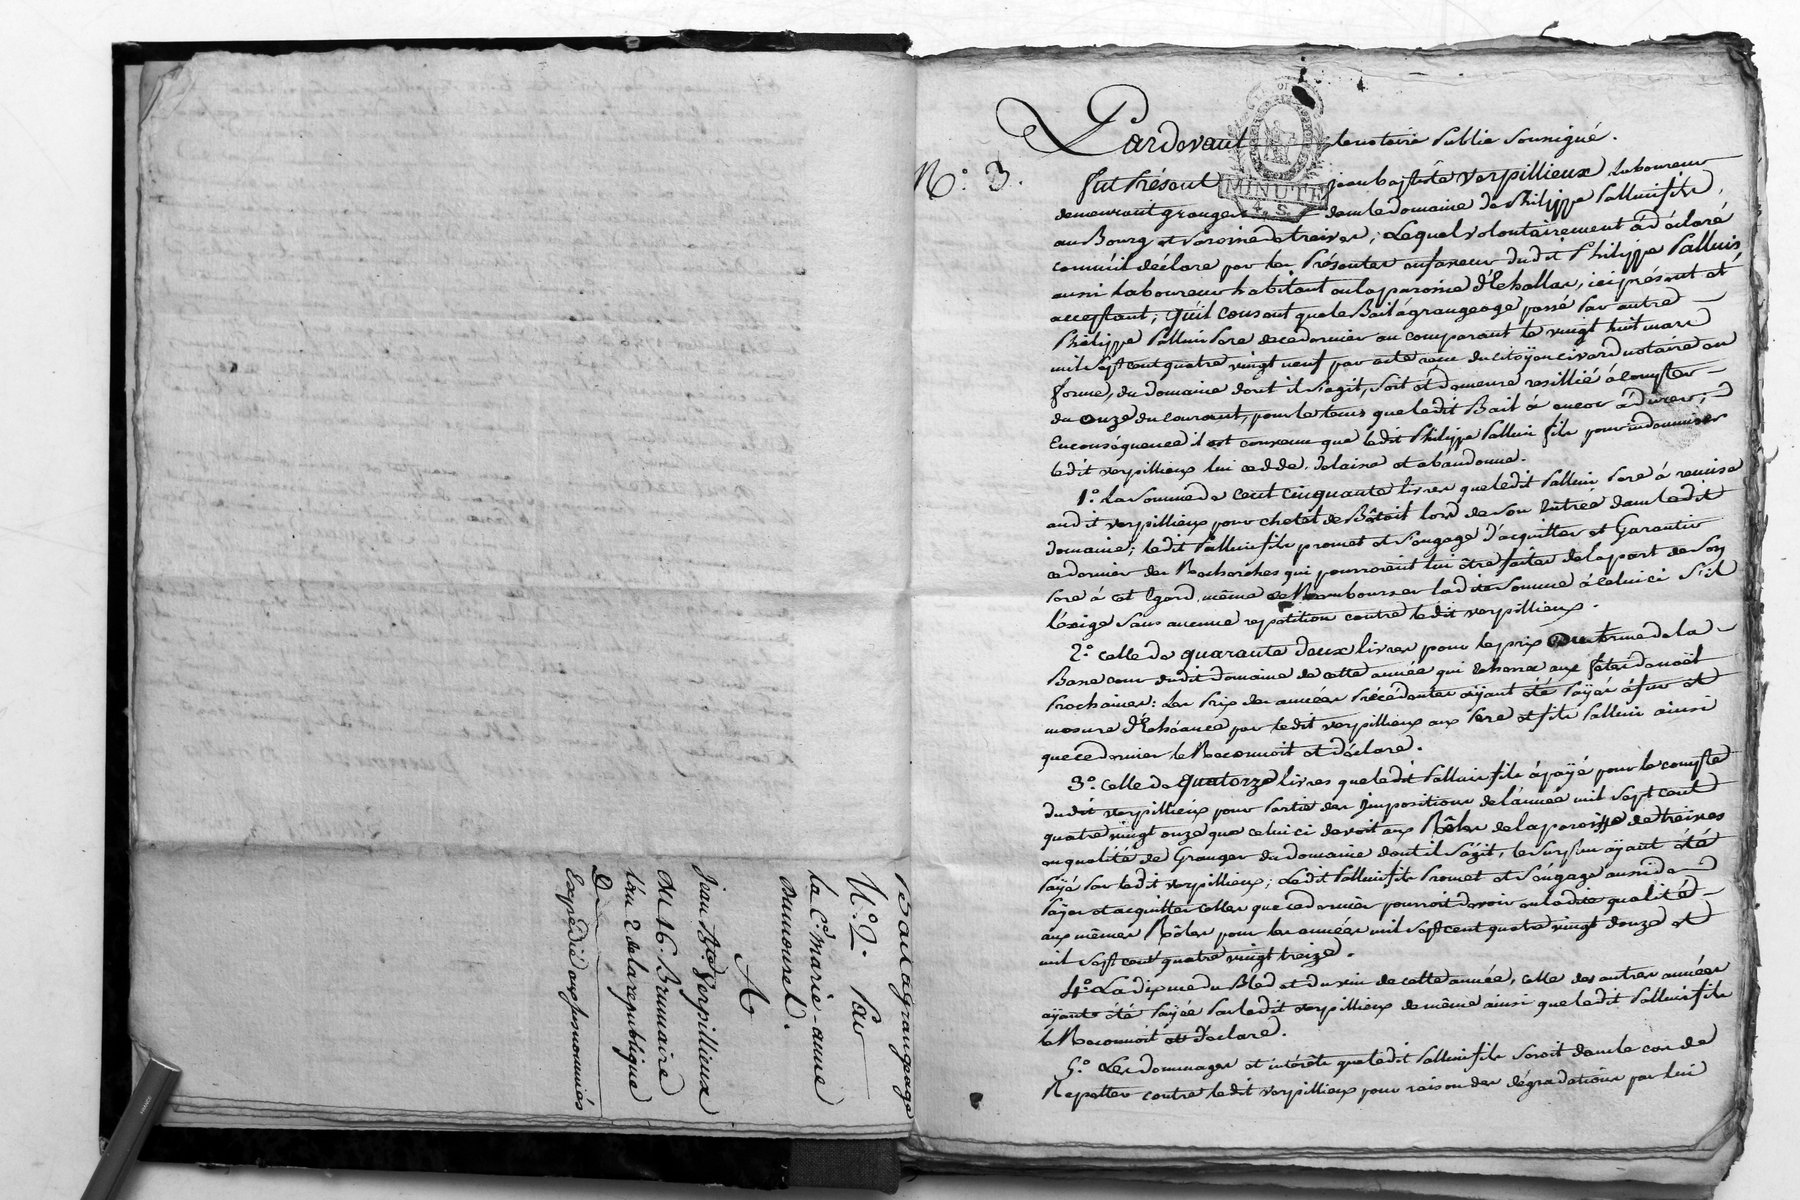 Bail a grangeage
N.° 2. Par
la C.ne marie-anne
Dumourel.
A
jean Bte. Verpillieux
du 16. Brumaire
l'an 2 de la republique
Expédié aux susnommés
N.° 3.
MINUTE
4. S.
Pardevant le notaire Public soussigné.
fut Présent jean baptiste Verpillieux Laboureur
demeurant granger dans le domaine de Philippe Palluis fils,
au Bourg et Paroisse de treives; Lequel volontairement à déclaré
comm'il déclare par les Présentes en faveur dudit Philippe Palluis
aussi Laboureur habitant en la paroisse d'Echallas, ici présent et
acceptant; qu'il consent que le Bail à grangeage passé par autre
Philippe Palluis Pere de ce dernier au comparant le vingt huit mars
mil sept cent quatre vingt neuf par acte reçu du citoyen civard notaire en
forme, du domaine dont il s'agit, soit et demeure resillié à compter
du Onze du courant, pour le tems que ledit Bail à encor à durer;
En conséquence il est convenu que ledit Philippe Palluis fils pour indemniser
ledit verpillieux lui cedde, delaisse et abandonne.
1.° La somme de cent cinquante livres que ledit Palluis Pere à remise
audit verpillieux pour chetel de Bétail lors de son Entrée dans ledit
domaine; ledit Palluis fils promet et s'engage d'acquitter et Garantir
ce dernier des Recherches qui pourroient lui être faites de la part de son
Pere à cet Egard, même de Rembourser ladite somme à celui ci s'il
l'exige sans aucune repetition contre ledit verpillieux.
2.° celle de quarante deux livres pour le prix ou ferme de la
Basse cour dudit domaine de cette année qui echerra aux fetes de noël
Prochaines: Les Prix des années Précédentes ayant été Payés à fur et
mesure d'Echéance par ledit verpillieux aux Pere et fils Palluis ainsi
que ce dernier le Reconnoit et déclare.
3.° celle de quatorze livres que ledit Palluis fils à payé pour le compte
dudit verpillieux pour Partie des Impositions de l'année mil sept cent
quatre vingt onze que celui ci devoit aux Rôles de la paroisse de treives
en qualité de Granger du domaine dont il s'agit, le surplus ayant été
Payé Par ledit verpillieux; Ledit Palluis fils Promet et s'engage aussi de
Payer et acquitter celles que ce dernier pourroit devoir en ladite qualité
aux mêmes Rôles pour les années mil sept cent quatre vingt douze et
mil sept cent quatre vingt treize.
4.° La dixme du Bled et du vin de cette année, celle des autres années
ayants été Payée Par ledit verpillieux de même ainsi que ledit Palluis fils
le Reconnoit et déclare.
5.° Les dommages et intérêts que ledit Palluis fils seroit dans le cas de
Repetter contre ledit verpillieux pour raison des dégradations par lui